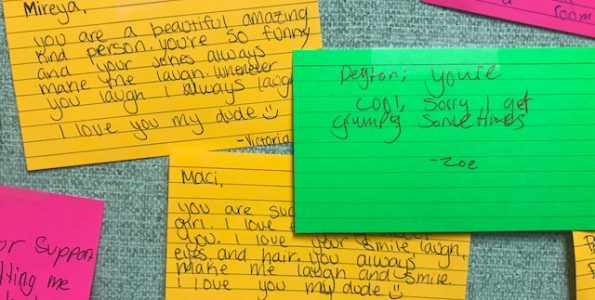 Mireya,
you are a beautiful amazing
kind person. you're so funny
and your jokes always
make me laugh. whenever
you laugh I always laugh
I love you my dude
-Victoria
room
Peyton; you're
cool, sorry I get
grumpy sometimes
-Zoe
Maci,
you are
girl. I love
you. I love your smile laugh,
eyes, and hair. you always
make me laugh and smile.
I love you my dude
or support
tting me